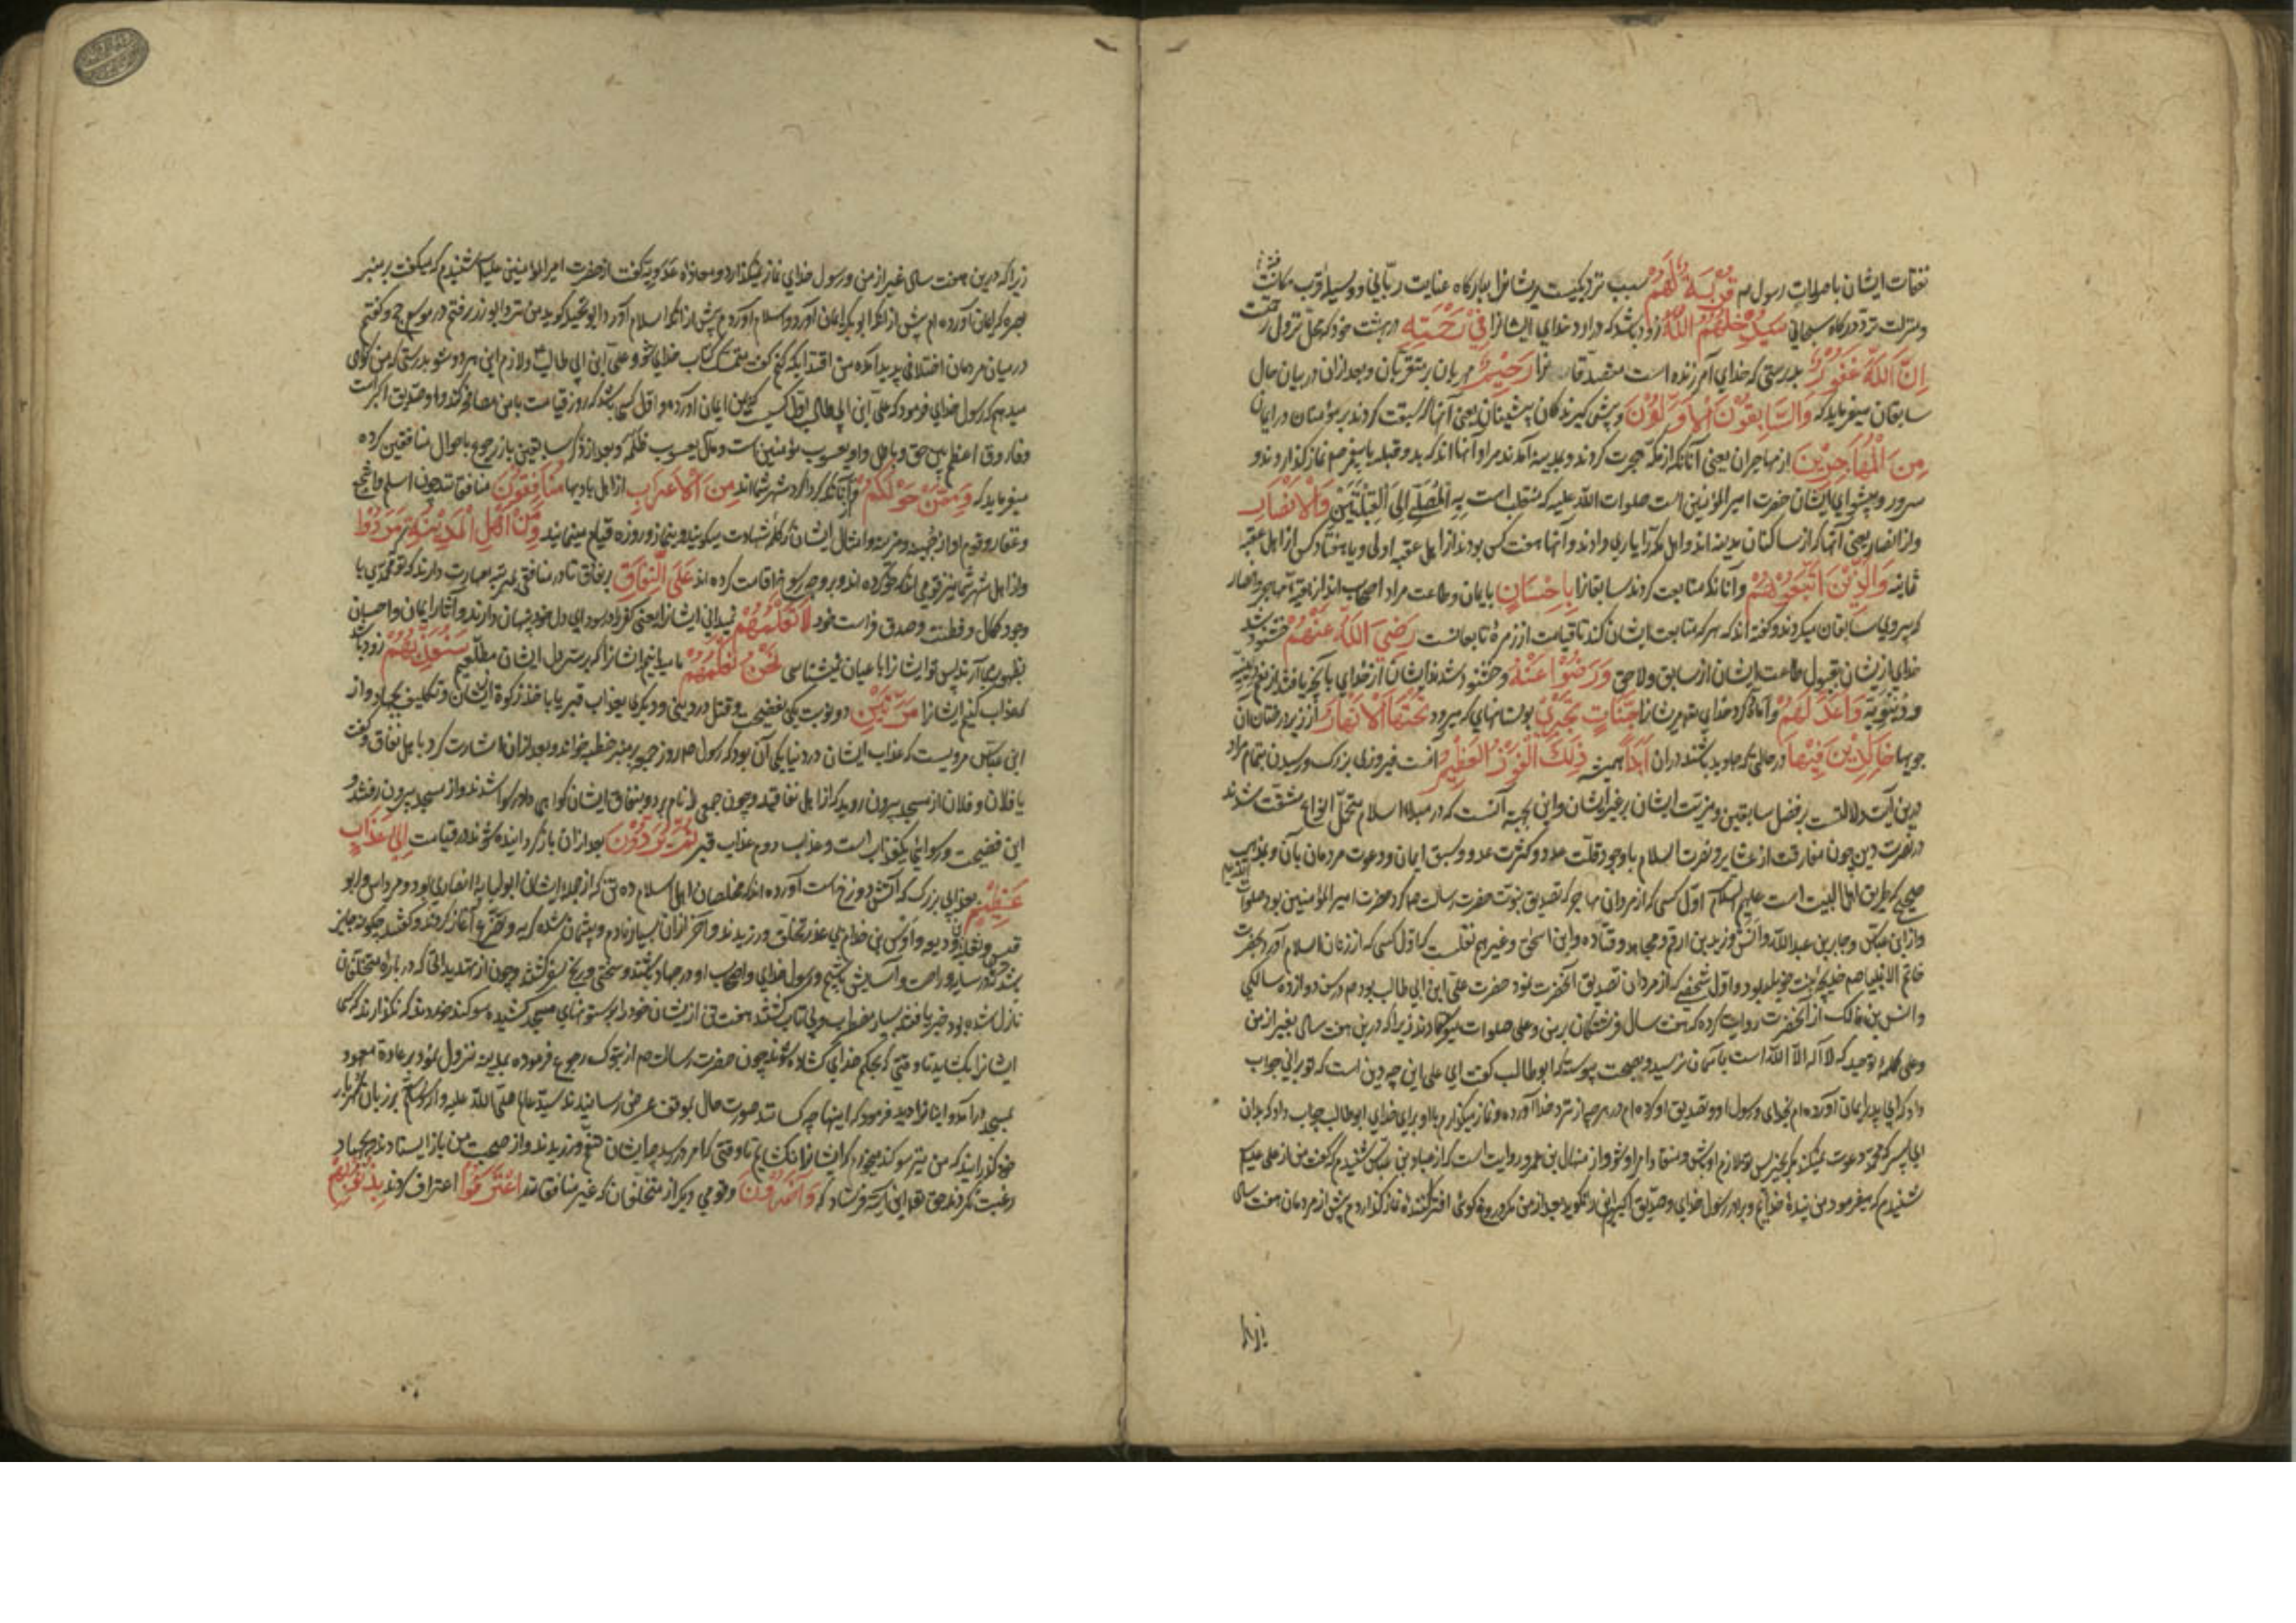 نفقات ایشان با صلوات رسول ص قُرْبَةٌ لَهُمْ سبب نزدیکیست مر ایشانرا ببارگاه عنایت ربّانی و وسیله قرب مکانت
و منزلت نزد درگاه سبحانی سَيُدْخِلُهُمُ اللَّهُ زود باشد که در آورد خدای ایشانرا فِي رَحْمَتِهِ در بهشت خود که محلّ نزول رحمتست
إِنَّ اللَّهَ غَفُورٌ بدرستی که خدای آمرزنده است متصدّقانرا رَحِيمٌ مهربان بر متقربان و بعد از آن در بیان حال
سابقان میفرماید که وَالسَّابِقُونَ الْأَوَّلُونَ و پیشی گیرندگان پیشینان یعنی آنها که سبقت کردند بر مؤمنان در ایمان
مِنَ الْمُهَاجِرِينَ از مهاجران یعنی آنانکه از مکّه هجرت کردند و بمدینه آمدند مراد آنها اند که بدو قبله با پیغمبر ص نماز گذاردند و
سرور و پیشوای ایشان حضرت امیر المؤمنین است صلوات الله علیه که منقبت اَلْمُصَلِّي إِلَى الْقِبْلَتَيْنِ وَالْأَنْصَارِ
و از انصار یعنی آنها که از ساکنان مدینه اند و اهل مکه را یاری دادند و آنها هفت کس بودند از اهل عقبه اولی و یا هفتاد کس از اهل عقبه
ثانیه وَالَّذِينَ اتَّبَعُوهُمْ و آنانکه متابعت کردند سابقانرا بِإِحْسَانٍ بایمان و طاعت مراد اصحاب اند از بقیه مهاجر و انصار
که پیروی سابقان میکردند و گفته اند که هر که متابعت ایشان کند تا قیامت از زمرهٔ تابعانست رَضِيَ اللَّهُ عَنْهُمْ خشنود شد
خدای از ایشان بقبول طاعت ایشان از سابق و لاحق وَرَضُوا عَنْهُ و خشنود شدند ایشان از خدای بآنچه یافتند از نعم دینیّه
و دنیویّه وَأَعَدَّ لَهُمْ و آماده کرد خدای مر ایشانرا جَنَّاتٍ تَجْرِي بوستانهای که میرود تَحْتَهَا الْأَنْهَارُ از زیر درختان آن
جویها خَالِدِينَ فِيهَا در حالتی که جاوید باشند در آن أَبَدًا همیشه ذَلِكَ الْفَوْزُ الْعَظِيمُ اینست فیروزی بزرگ و رسیدن بتمام مراد
درین آیت دلالتست بر فضل سابقین و مزیّت ایشان بر غیر ایشان و این بجهة آنست که در مبدا اسلام متحمّل انواع مشقّت شدند
در نصرت دین چون مفارقت از عشایر و نصرت اسلام با وجود قلّت عدد و کثرت عدو و سبق ایمان و دعوت مردمان بآن و بمذهب
صحیح که طریق اهل البیت است علیهم السلام اوّل کسی که از مردان مهاجر که تصدیق نبوّت حضرت رسالت ص کرد حضرت امیر المؤمنین بود صلوات الله علیه
و از ابن عبّاس و جابر بن عبدالله و انس و زید بن ارقم و مجاهد و قتاده و ابن اسحق و غیرهم نقلست که اوّل کسی که از زنان اسلام آورد بحضرت
خاتم الانبیا ص خدیجه بنت خویلد بود و اوّل شخصی که از مردان تصدیق آنحضرت نمود حضرت علی ابن ابی طالب بود ع در سن دوازده سالگی
و انس بن مالک از آنحضرت روایت کرده که هفت سال فرشتگان بر من و علی صلوات میفرستادند زیرا که درین هفت سال بغیر از من
و علی کلمهٔ توحید که لا اله الا الله است بآسمان نرسید و بصحت پیوسته که ابو طالب گفت ای علی این چه دین است که تو بر آنی جواب
داد که ای پدر ایمان آورده ام بخدای و رسول او و تصدیق او کرده ام در هر چه از نزد خدا آورده و نماز میگذارم با او برای خدای ابو طالب جواب داد که بدان
ای پسر که محمد دعوت نمیکند مگر بخیر پس تو ملازم او باش و منقاد امر او شو و از منهال بن عمرو روایت است که از عباد بن عبدالله شنیدم که گفت من از علی علیه
شنیدم که میفرمود من بندهٔ خدایم و برادر رسول خدای و صدّیق اکبر این را نگوید بعد از من مگر دروغ گوی افترا کننده نماز گذاردم پیش از مردمان هفت سال
زیرا
زیرا که درین هفت سال غیر از من و رسول خدای نماز نمیگذارد و معاذه عدویه گفت از حضرت امیر المؤمنین علیه السلام شنیدم که میگفت بر منبر
بصره که ایمان آورده ام پیش از آنکه ابوبکر ایمان آورد و اسلام آوردم پیش از آنکه اسلام آورد
در میان مردمان اختلافی پدید آمده من اقتدا بکه کنم گفت متمسک بکتاب خدای شو و علی ابن ابی طالب و ملازم این هر دو شو بدرستی که من گواهی
میدهم که رسول خدای فرمود که علی ابن ابی طالب اوّل کسیست که بمن ایمان آورده و اوّل کسی باشد که روز قیامت با من مصافحه کند و او صدّیق اکبر است
و فاروق اعظم بین حق و باطل و او یعسوب مؤمنین است و مال یعسوب ظلمه و بعد از ذکر سابقین باز رجوع باحوال منافقین کرده
میفرماید که وَمِمَّنْ حَوْلَكُمْ و از آنانکه گرداگرد شهر شما اند مِنَ الْأَعْرَابِ از اهل بادیها مُنَافِقُونَ منافقانند چون اسلم و اشجع
و غفار و قوم او از جهینه و مزینه و امثال ایشان که کلمهٔ شهادت میگویند و بنماز و روزه قیام مینمایند وَمِنْ أَهْلِ الْمَدِينَةِ مَرَدُوا
و از اهل شهر شما نیز قومی اند که خو کرده اند و بر وجه رسوخ اقامت کرده اند عَلَى النِّفَاقِ بر نفاق تا در منافقی بمرتبه مهارت دارند که تو محمدی با
وجود کمال فطنت و صدق فراست خود لَا تَعْلَمُهُمْ نمیدانی ایشانرا یعنی کفر در سویدای دل خود پنهان دارند و آثار ایمان و احسان
بظهور می آرند پس تو ایشانرا باعیان نمیشناسی نَحْنُ نَعْلَمُهُمْ ما میدانیم ایشانرا که بر سرّ دل ایشان مطلّعیم سَنُعَذِّبُهُمْ زود باشد
که عذاب کنیم ایشانرا مَرَّتَيْنِ دو نوبت یکی بفضیحت و قتل در دنیا و دیگری بعذاب قبر یا باخذ زکوة از ایشان و تکلیف بجهاد و از
ابن عبّاس مرویست که عذاب ایشان در دنیا یکی آن بود که رسول ص روز جمعه بر منبر خطبه خواند و بعد از آن اشارت کرد باهل نفاق و گفت
یا فلان و فلان از مسجد بیرون روید که از اهل نفاقید و چون جمعی را نام برد و بنفاق ایشان گواهی داد رسوا شدند و از مسجد بیرون رفتند و
این فضیحت و رسوائی یکعذاب است و عذاب دوم عذاب قبر ثُمَّ يُرَدُّونَ بعد از آن باز گردانیده شوند در قیامت إِلَى عَذَابٍ
عَظِيمٍ بعذابی بزرگ که آتش دوزخ است آورده اند که مخلصان اهل اسلام ده تن که از جمله ایشان ابو لبابهٔ انصاری بود و مرداس و ابو
قیس و ثعلبه بن ودیعه و اوس بن خدام بی عذر تخلّف ورزیدند و آخر از آن بسیار نادم و پشیمان شده گریه و تضرّع آغاز کردند و گفتند چگونه جایز
باشد که ما در سایه و راحت و آسایش باشیم و رسول خدای و اصحاب او در جهاد باشند و سختی و رنج سفر کشند و چون از تهدیداتی که در باره متخلّفان
نازل شده بود خبر یافتند بسیار مضطرب و بی تاب گشتند هفت تن از ایشان خود را بر ستونهای مسجد کشیده سوگند خوردند که نگذارند که کسی
ایشانرا بگشاید تا وقتی که بحکم خدای گشاده شوند چون حضرت رسالت ص از تبوک رجوع فرموده بمدینه نزول نمود بر عادة معهود
بمسجد در آمد و اینانرا دید فرمود که اینها چه کسانند صورت حال بموقف عرض رسانیدند سیّد عالم صلّی الله علیه و آله و سلم بر زبان گهربار
خود گذرانید که من نیز سوگند میخورم که ایشانرا نگشایم تا وقتی که امر در رسد چه ایشان تخلف ورزیدند و از صحبت من باز ایستادند و بجهاد
رغبت نکردند حق تعالی این آیة فرستاد که وَآخَرُونَ و قومی دیگر از متخلفان که غیر منافقانند اعْتَرَفُوا اعتراف کردند بِذُنُوبِهِمْ